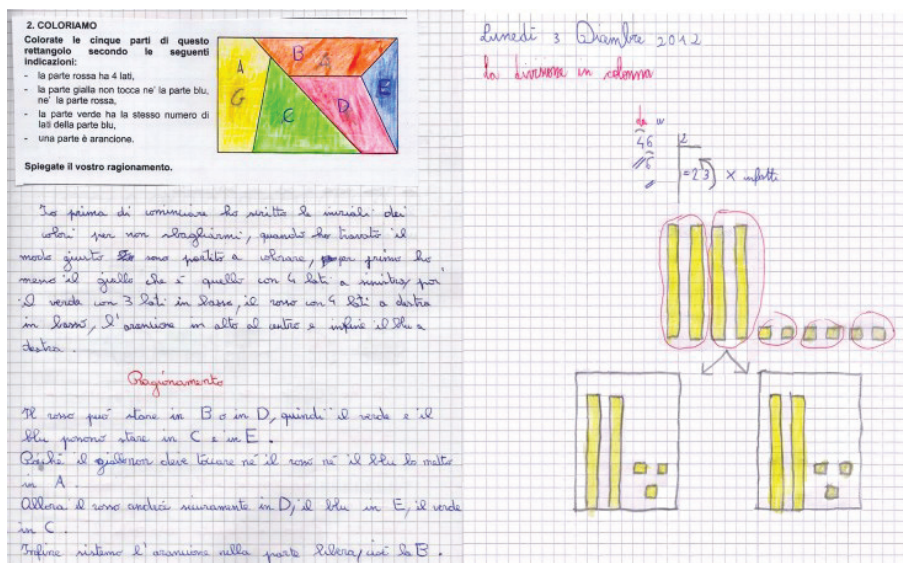 2. COLORIAMO
Colorate le cinque parti di questo
rettangolo secondo le seguenti
indicazioni:
- la parte rossa ha 4 lati,
- la parte gialla non tocca ne' la parte blu,
ne' la parte rossa,
- la parte verde ha la stesso numero di
lati della parte blu,
- una parte è arancione.
Spiegate il vostro ragionamento.
A
B
G
C
D
E
Io prima di cominciare ho scritto le iniziali dei
colori per non sbagliarmi, quando ho trovato il
modo giusto sono partito a colorare, per primo ho
messo il giallo che è quello con 4 lati a sinistra, poi
il verde con 3 lati in basso, il rosso con 4 lati a destra
in basso, l'arancione in alto al centro e infine il blu a
destra.
Ragionamento
Il rosso può stare in B o in D, quindi il verde e il
blu possono stare in C e in E.
Poiché il giallo non deve toccare né il rosso né il blu lo metto
in A.
Allora il rosso andrà sicuramente in D, il blu in E, il verde
in C.
Infine sistemo l'arancione nella parte libera, cioè la B.
Lunedì 3 Dicembre 2012
La divisione in colonna
da u
46 2
//6 =23) × infatti
//